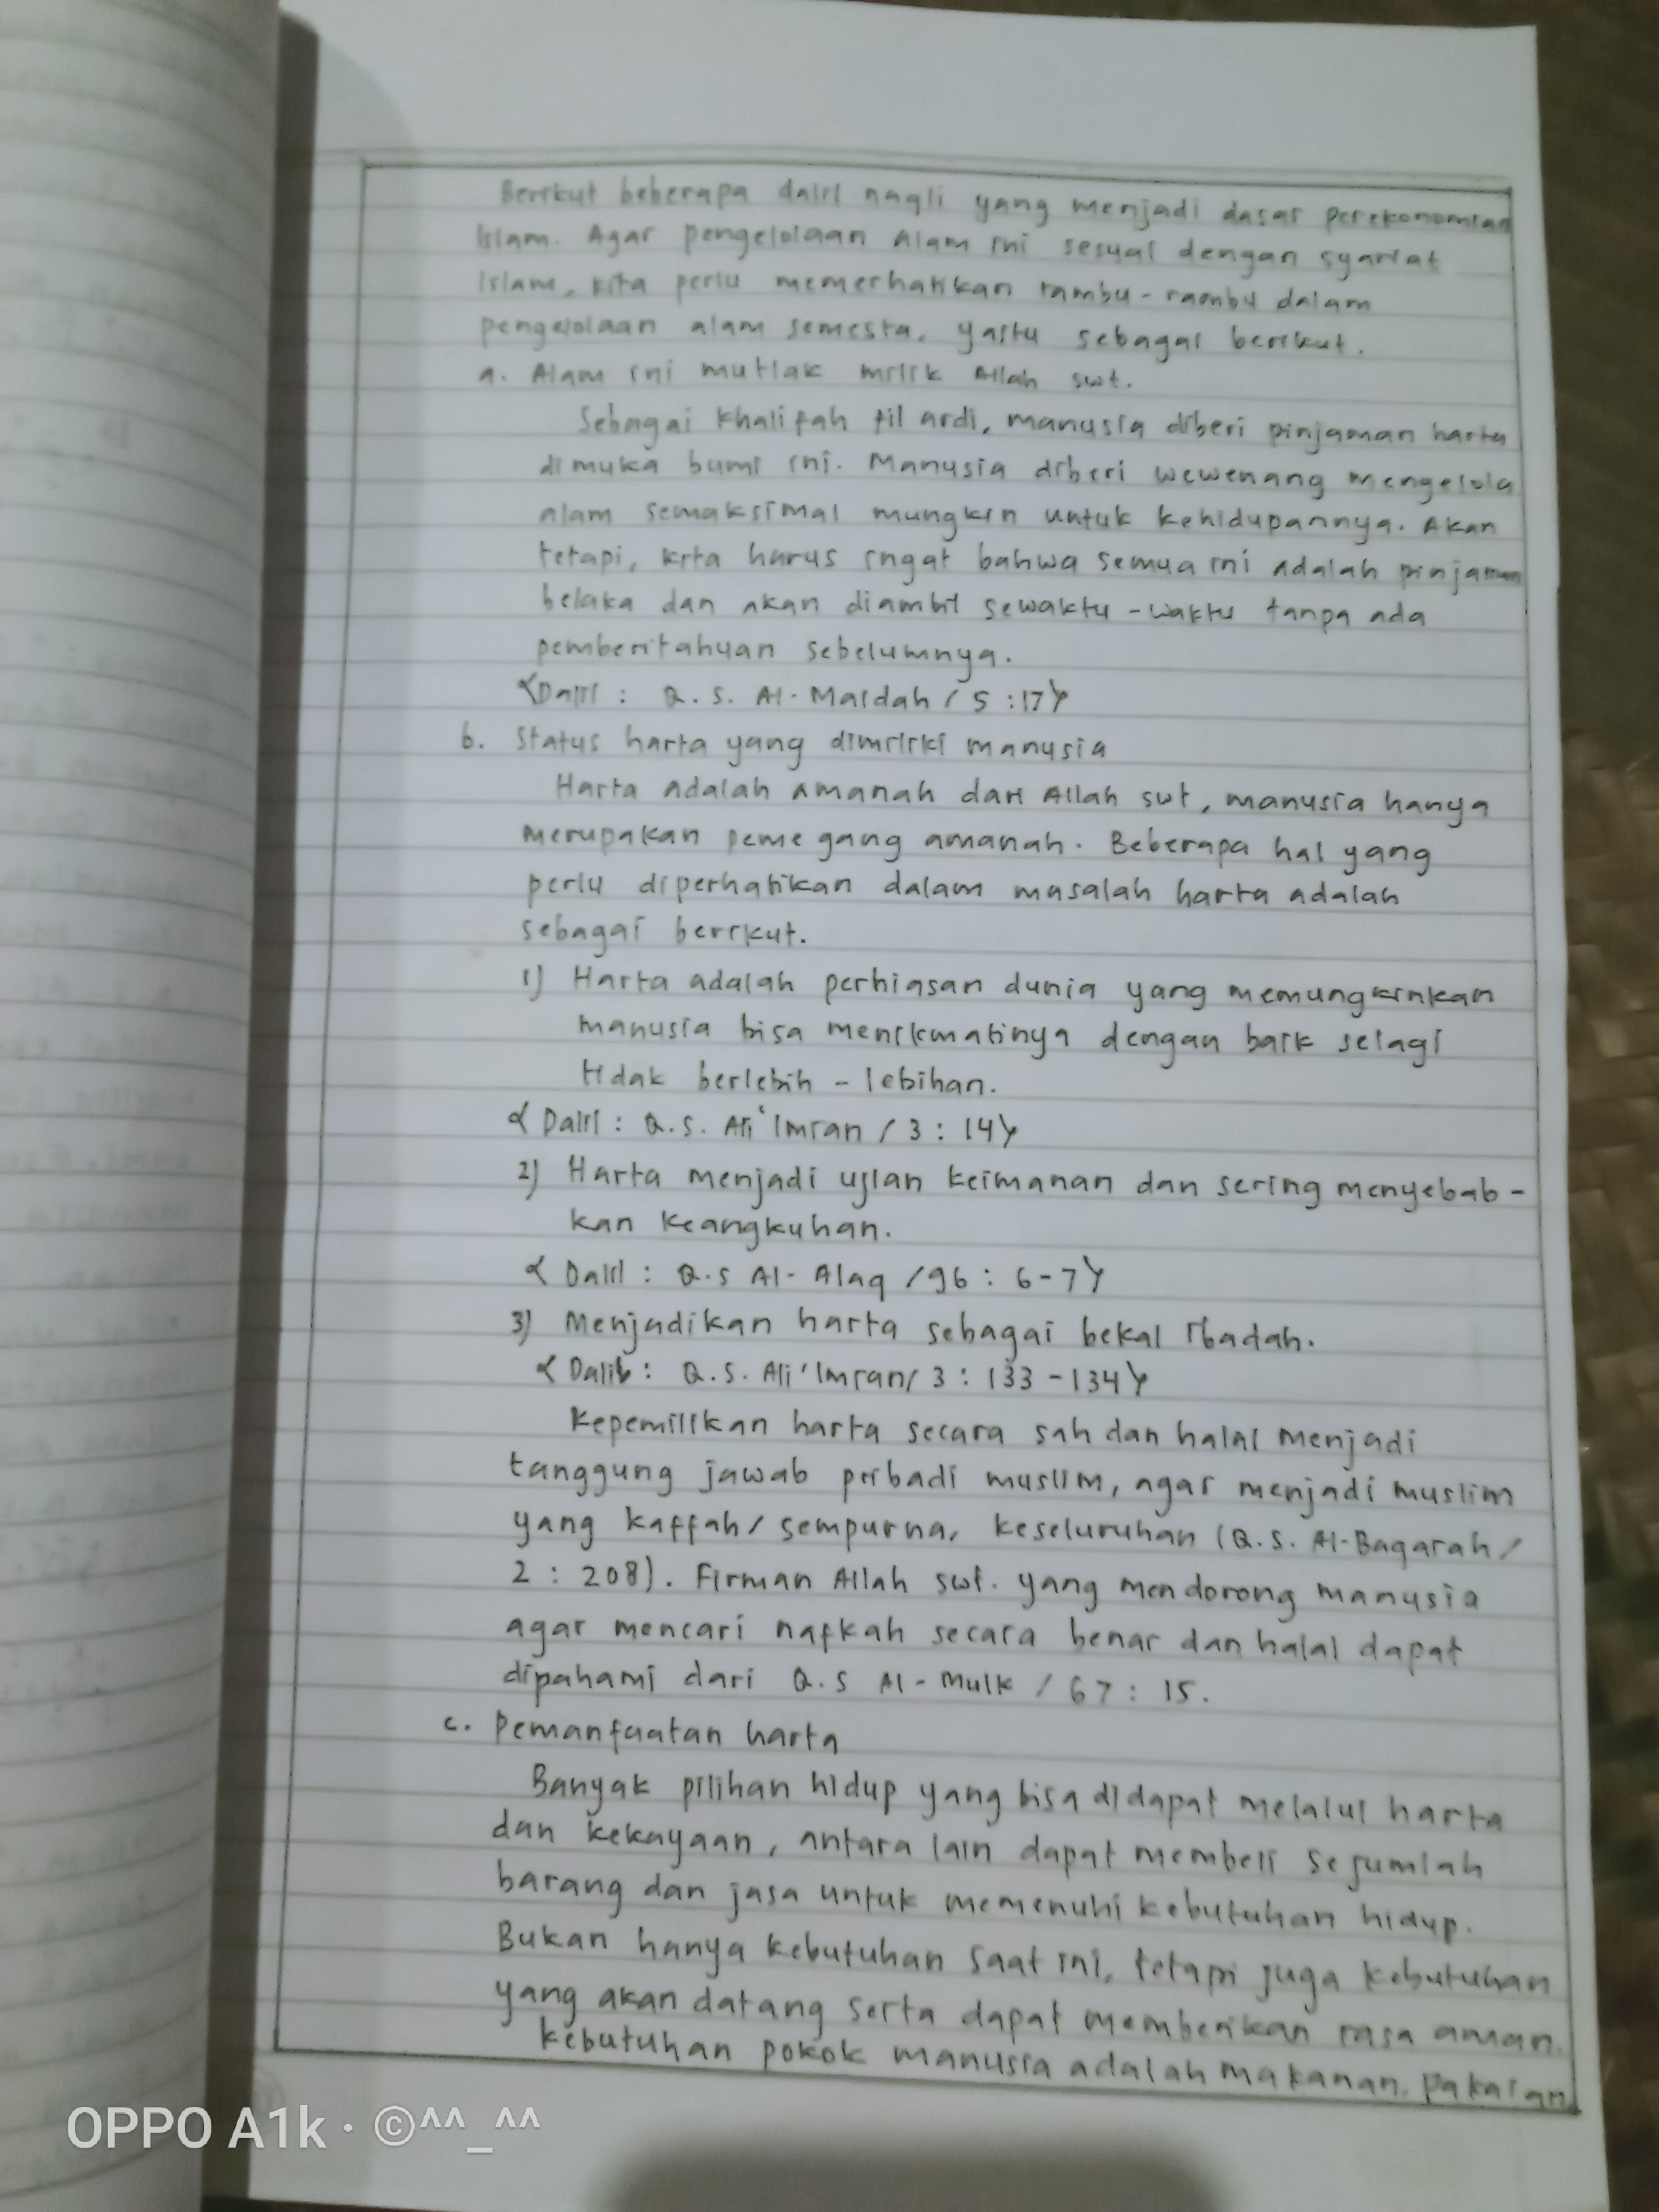 Berikut beberapa dalil naqli yang menjadi dasar perekonomian
Islam. Agar pengelolaan Alam ini sesuai dengan syariat
Islam, kita perlu memerhatikan rambu-rambu dalam
pengelolaan alam semesta, yaitu sebagai berikut.
a. Alam ini mutlak milik Allah swt.
Sebagai khalifah fil ardi, manusia diberi pinjaman harta
dimuka bumi ini. Manusia diberi wewenang mengelola
alam semaksimal mungkin untuk kehidupannya. Akan
tetapi, kita harus ingat bahwa semua ini adalah pinjaman
belaka dan akan diambil sewaktu-waktu tanpa ada
pemberitahuan sebelumnya.
{Dalil : Q.S. Al-Maidah / 5 :17}
b. Status harta yang dimiliki manusia
Harta adalah amanah dari Allah swt, manusia hanya
merupakan pemegang amanah. Beberapa hal yang
perlu diperhatikan dalam masalah harta adalah
sebagai berikut.
1) Harta adalah perhiasan dunia yang memungkinkan
manusia bisa menikmatinya dengan baik selagi
tidak berlebih-lebihan.
{Dalil : Q.S. Ali 'Imran / 3 : 14}
2) Harta menjadi ujian keimanan dan sering menyebab-
kan keangkuhan.
{Dalil : Q.S Al-Alaq /96 : 6-7}
3) Menjadikan harta sebagai bekal ibadah.
{Dalil : Q.S. Ali 'Imran/ 3 : 133-134}
Kepemilikan harta secara sah dan halal menjadi
tanggung jawab pribadi muslim, agar menjadi muslim
yang kaffah/sempurna, keseluruhan (Q.S. Al-Baqarah/
2 : 208). Firman Allah swt. yang mendorong manusia
agar mencari nafkah secara benar dan halal dapat
dipahami dari Q.S Al-Mulk / 67 : 15.
c. Pemanfaatan harta
Banyak pilihan hidup yang bisa didapat melalui harta
dan kekayaan, antara lain dapat membeli sejumlah
barang dan jasa untuk memenuhi kebutuhan hidup.
Bukan hanya kebutuhan saat ini, tetapi juga kebutuhan
yang akan datang serta dapat memberikan rasa aman.
kebutuhan pokok manusia adalah makanan, pakaian
OPPO A1k · ©^^_^^